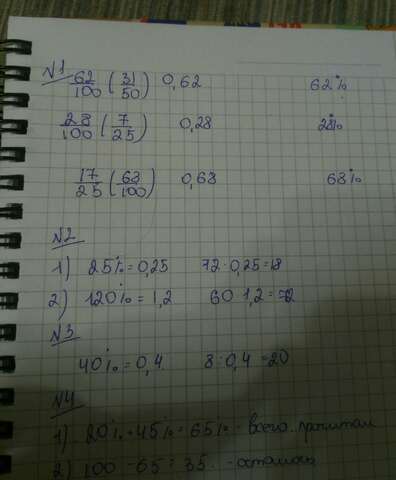 №1
62/100 (31/50) 0,62 62%
28/100 (7/25) 0,28 28%
17/25 (68/100) 0,68 68%
№2
1) 25% = 0,25 72 · 0,25 = 18
2) 120% = 1,2 60 · 1,2 = 72
№3
40% = 0,4 8 : 0,4 = 20
№4
1) 20% + 45% = 65% - всего прочитал
2) 100 - 65 = 35 - осталось